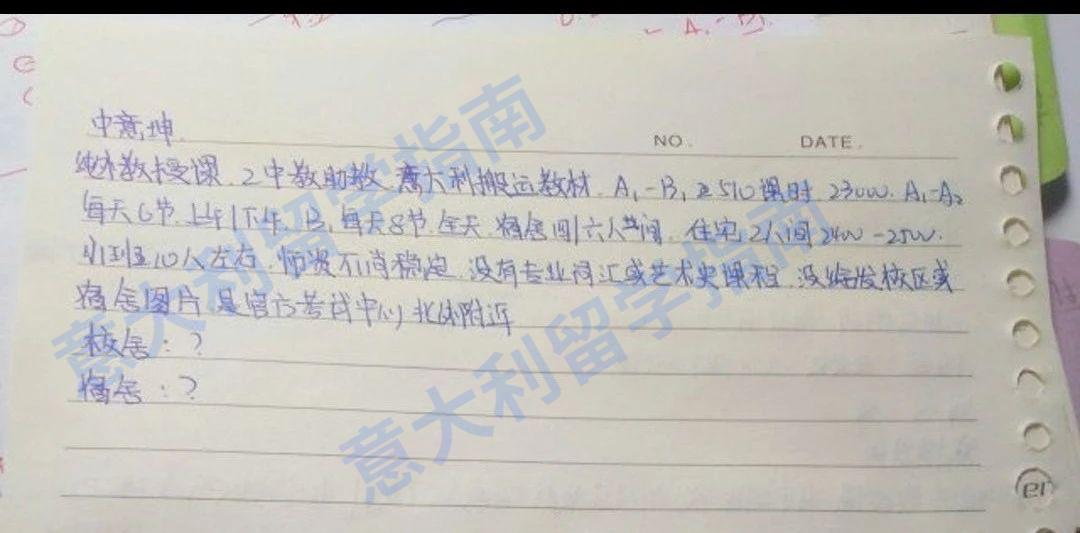 NO. DATE.
中意坤
纯外教授课. 2中教助教. 意大利搬运教材. A1-B1 ≥510课时 23000. A1-A2
每天6节. 上午|下午. B1 每天8节. 全天. 宿舍四|六人间. 住宅 2人间 2400-2500.
小班至10人左右. 师资不稳定. 没有专业词汇或艺术史课程. 没给发校区或
宿舍图片. 是官方考试中心 北外附近
校舍：？
宿舍：？
意大利留学指南
意大利留学指南